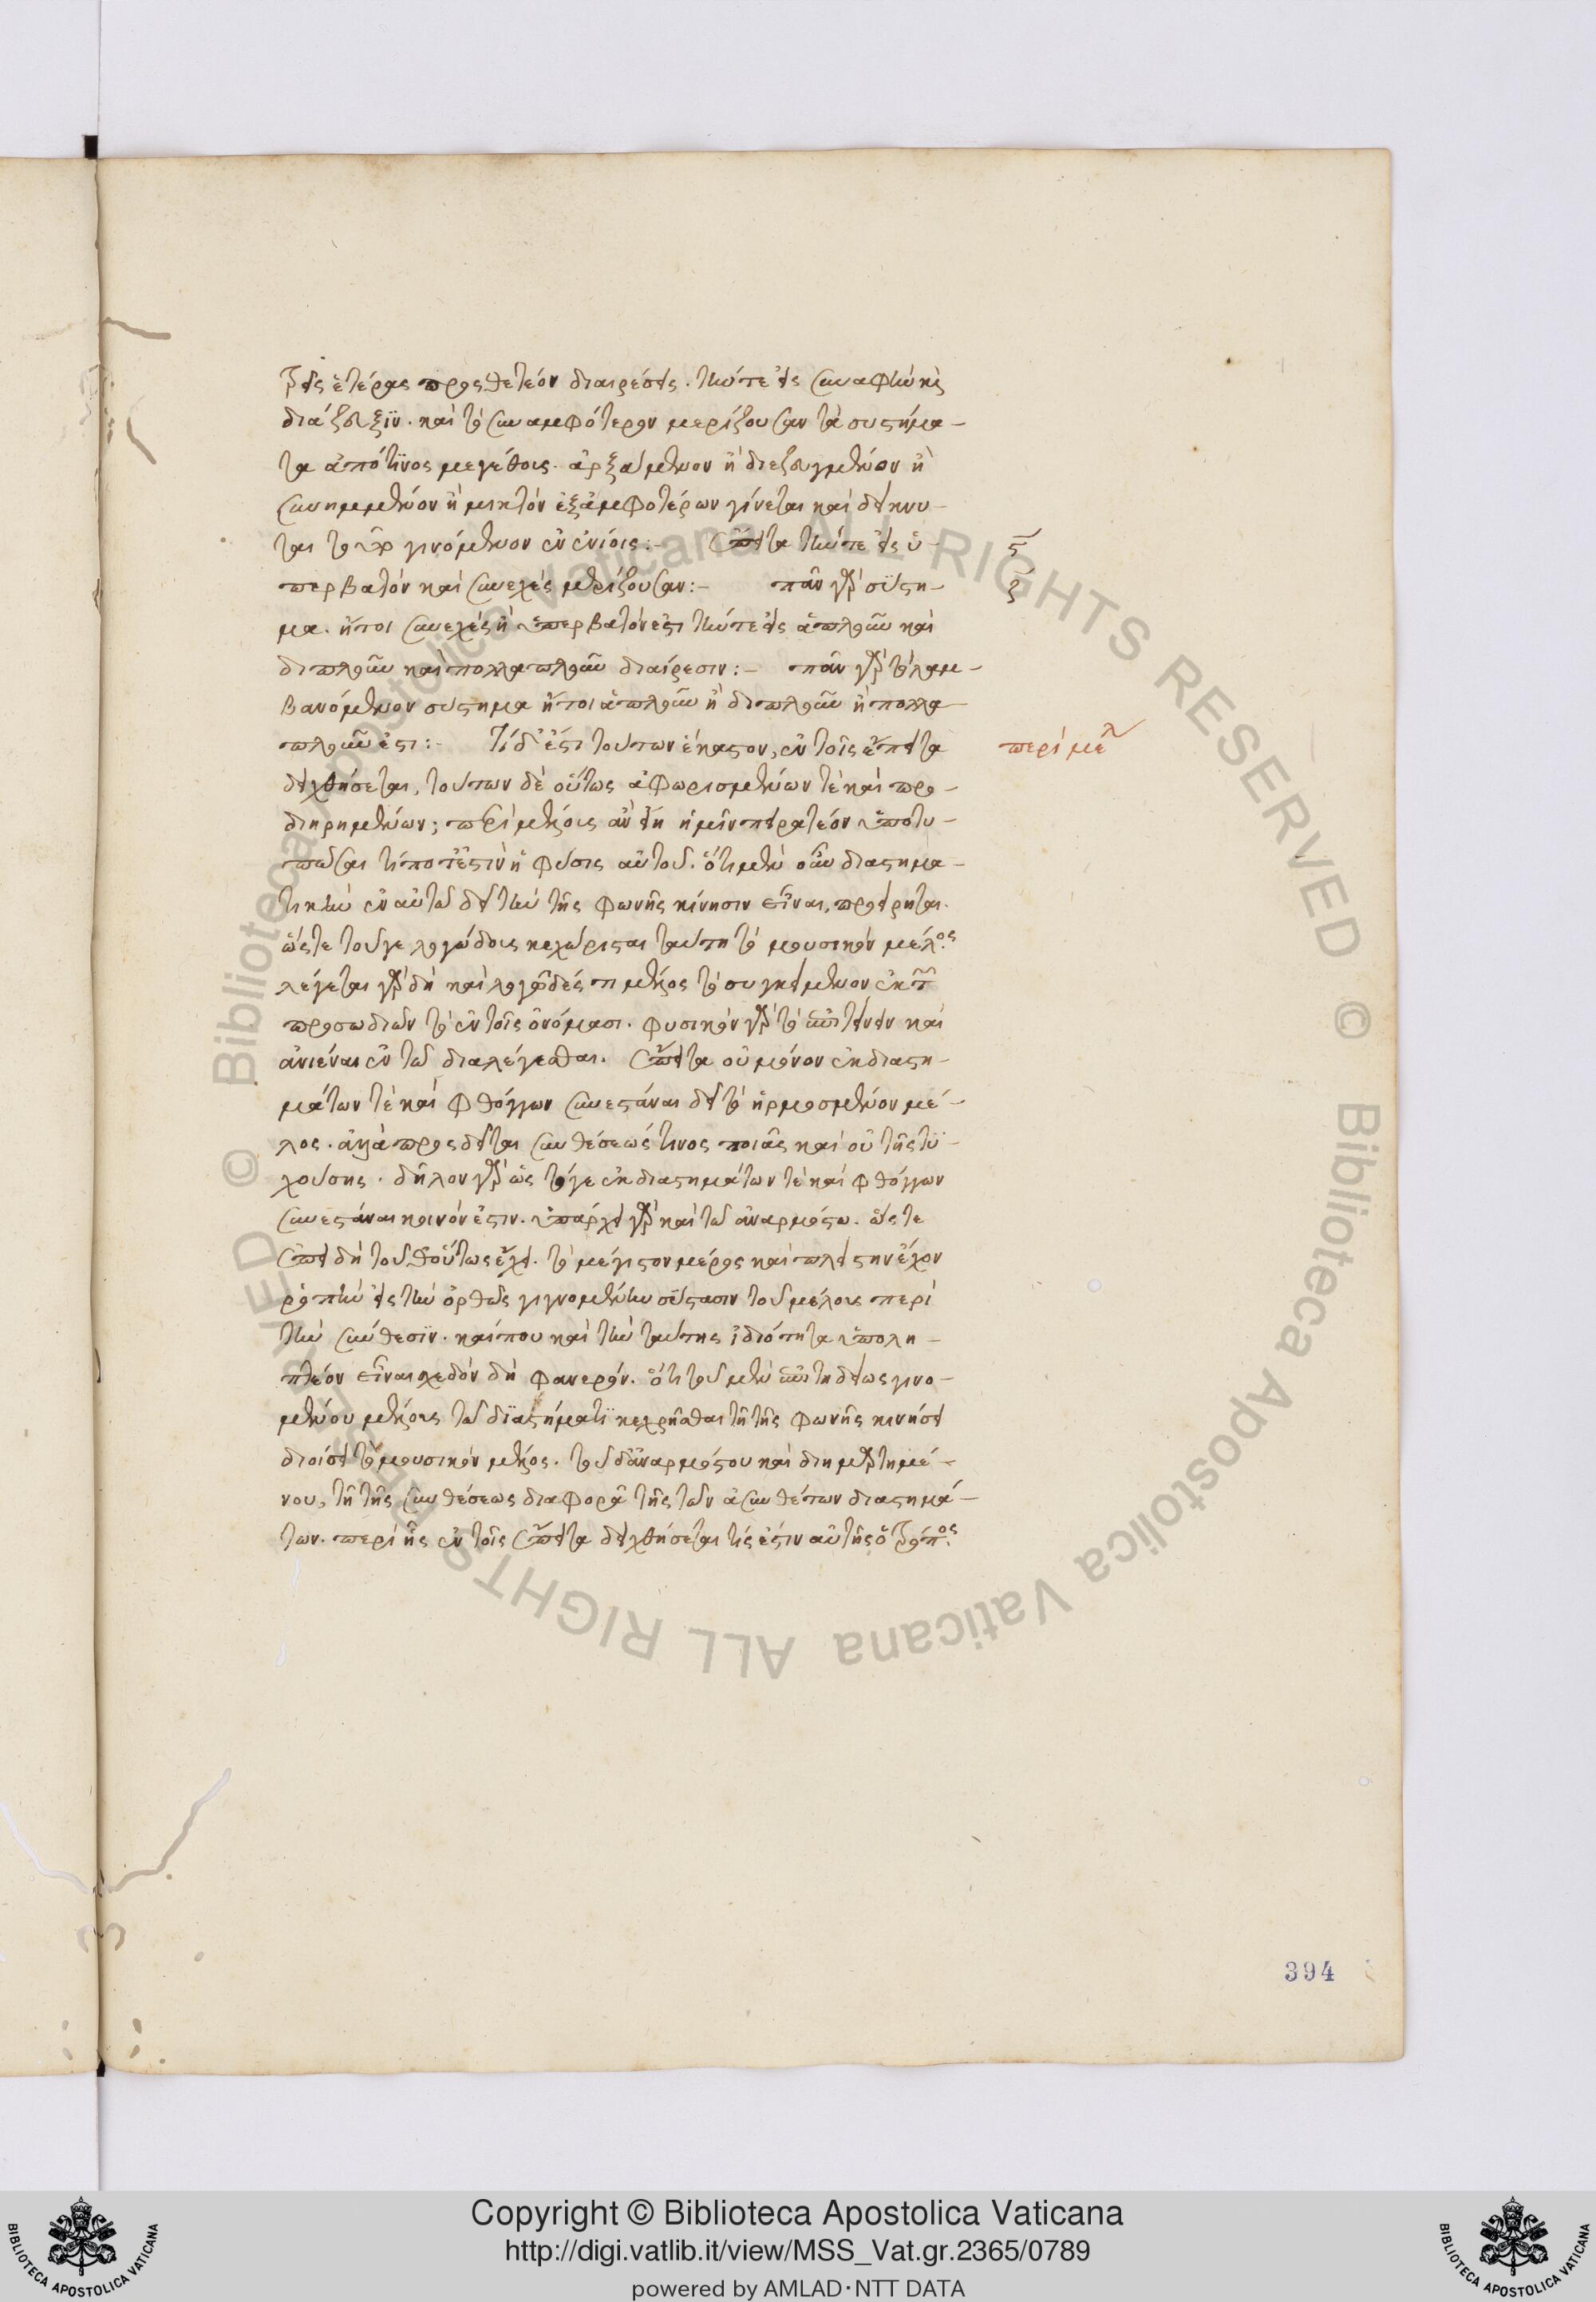 τρεῖς ἑτέρας προσθετέον διαιρέσεις. τήν τε εἰς συναφὴν καὶ
διάζευξϊν. καὶ τὸ συναμφότερον μερίζουσαν τὰ συστήμα-
τα ἀπό τϊνος μεγέθους. ἀρξάμενον ἢ διεζευγμένον ἢ
συνημμένον ἢ μικτὸν ἐξ ἀμφοτέρων γίνεται καὶ δείκνυ-
ται τοῦτο γινόμενον ἐν ἐνίοις:- ἔπειτα τήν τε εἰς ὑ- ϛ
περβατὸν καὶ συνεχὲς μερίζουσαν:- πᾶν γὰρ σύστη- ζ
μα. ἤτοι συνεχὲς ἢ ὑπερβατόν ἐστι τήν τε εἰς ἁπλοῦν καὶ
διπλοῦν καὶ πολλαπλοῦν διαίρεσιν:- πᾶν γὰρ τὸ λαμ-
βανόμενον σύστημα ἤτοι ἁπλοῦν ἢ διπλοῦν ἢ πολλα-
πλοῦν ἐστι:- Τί δ' ἐστὶ τούτων ἕκαστον, ἐν τοῖς ἔπειτα περὶ μελ
δειχθήσεται, τούτων δὲ οὕτως ἀφωρισμένων τὲ καὶ προ-
διῃρημένων; περὶ μέλους ἂν εἴη ἡμῖν πειρατέον ὑποτυ-
πῶσαι τί ποτ' ἐστὶν ἡ φύσις αὐτοῦ. ὅτι μὲν οὖν διαστημα-
τικὴν ἐν αὐτῶ δεῖ τὴν τῆς φωνῆς κίνησιν εἶναι, προείρηται.
ὥστε τοῦ γε λογώδους κεχώρισται ταύτη τὸ μουσικὸν μέλος
λέγεται γὰρ δὴ καὶ λογῶδές τι μέλος τὸ συγκείμενον ἐκ τῶν
προσωδιῶν τὸ ἐν τοῖς ὀνόμασι. φυσικὸν γὰρ τὸ ἐπιτείνειν καὶ
ἀνιέναι ἐν τῶ διαλέγεσθαι. ἔπειτα οὐ μόνον ἐκ διαστη-
μάτων τὲ καὶ φθόγγων συνεστάναι δεῖ τὸ ἡρμοσμένον μέ-
λος. ἀλλὰ προσδεῖται συνθέσεώς τινος ποιᾶς καὶ οὐ τῆς τϋ-
χούσης. δῆλον γὰρ ὡς τό γε ἐκ διαστημάτων τὲ καὶ φθόγγων
συνεστάναι κοινόν ἐστιν. ὑπάρχει γὰρ καὶ τῶ ἀναρμόστω. ὥστε
ἐπεὶ δὴ τοῦθ' οὕτως ἔχει. τὸ μέγιστον μέρος καὶ πλείστην ἔχον
ῥοπὴν εἰς τὴν ὀρθῶς γιγνομένην σύστασιν τοῦ μέλους περὶ
τὴν σύνθεσϊν. καί που καὶ τὴν ταύτης ἰδιότητα ὑπολη-
πτέον εἶναι σχεδὸν δὴ φανερόν. ὅτι τοῦ μὲν ἐπιτηδείως γινο-
μένου μέλους τῶ διαστήματϊ κεχρῆσθαι τῆ τῆς φωνῆς κινήσει
διοίσει τὸ μουσικὸν μέλος. τοῦ δ' ἀναρμόστου καὶ διημαρτημέ-
νου, τῆ τῆς συνθέσεως διαφορᾶ τῆς τῶν ἀσυνθέτων διαστημά-
των. περὶ ἧς ἐν τοῖς ἔπειτα δειχθήσεται τίς ἐστιν αὐτῆς ὁ τρόπος
394
Copyright © Biblioteca Apostolica Vaticana
http://digi.vatlib.it/view/MSS_Vat.gr.2365/0789
powered by AMLAD·NTT DATA
BIBLIOTECA APOSTOLICA VATICANA
BIBLIOTECA APOSTOLICA VATICANA
© Biblioteca Apostolica Vaticana ALL RIGHTS RESERVED © Biblioteca Apostolica Vaticana ALL RIGHTS RESERVED